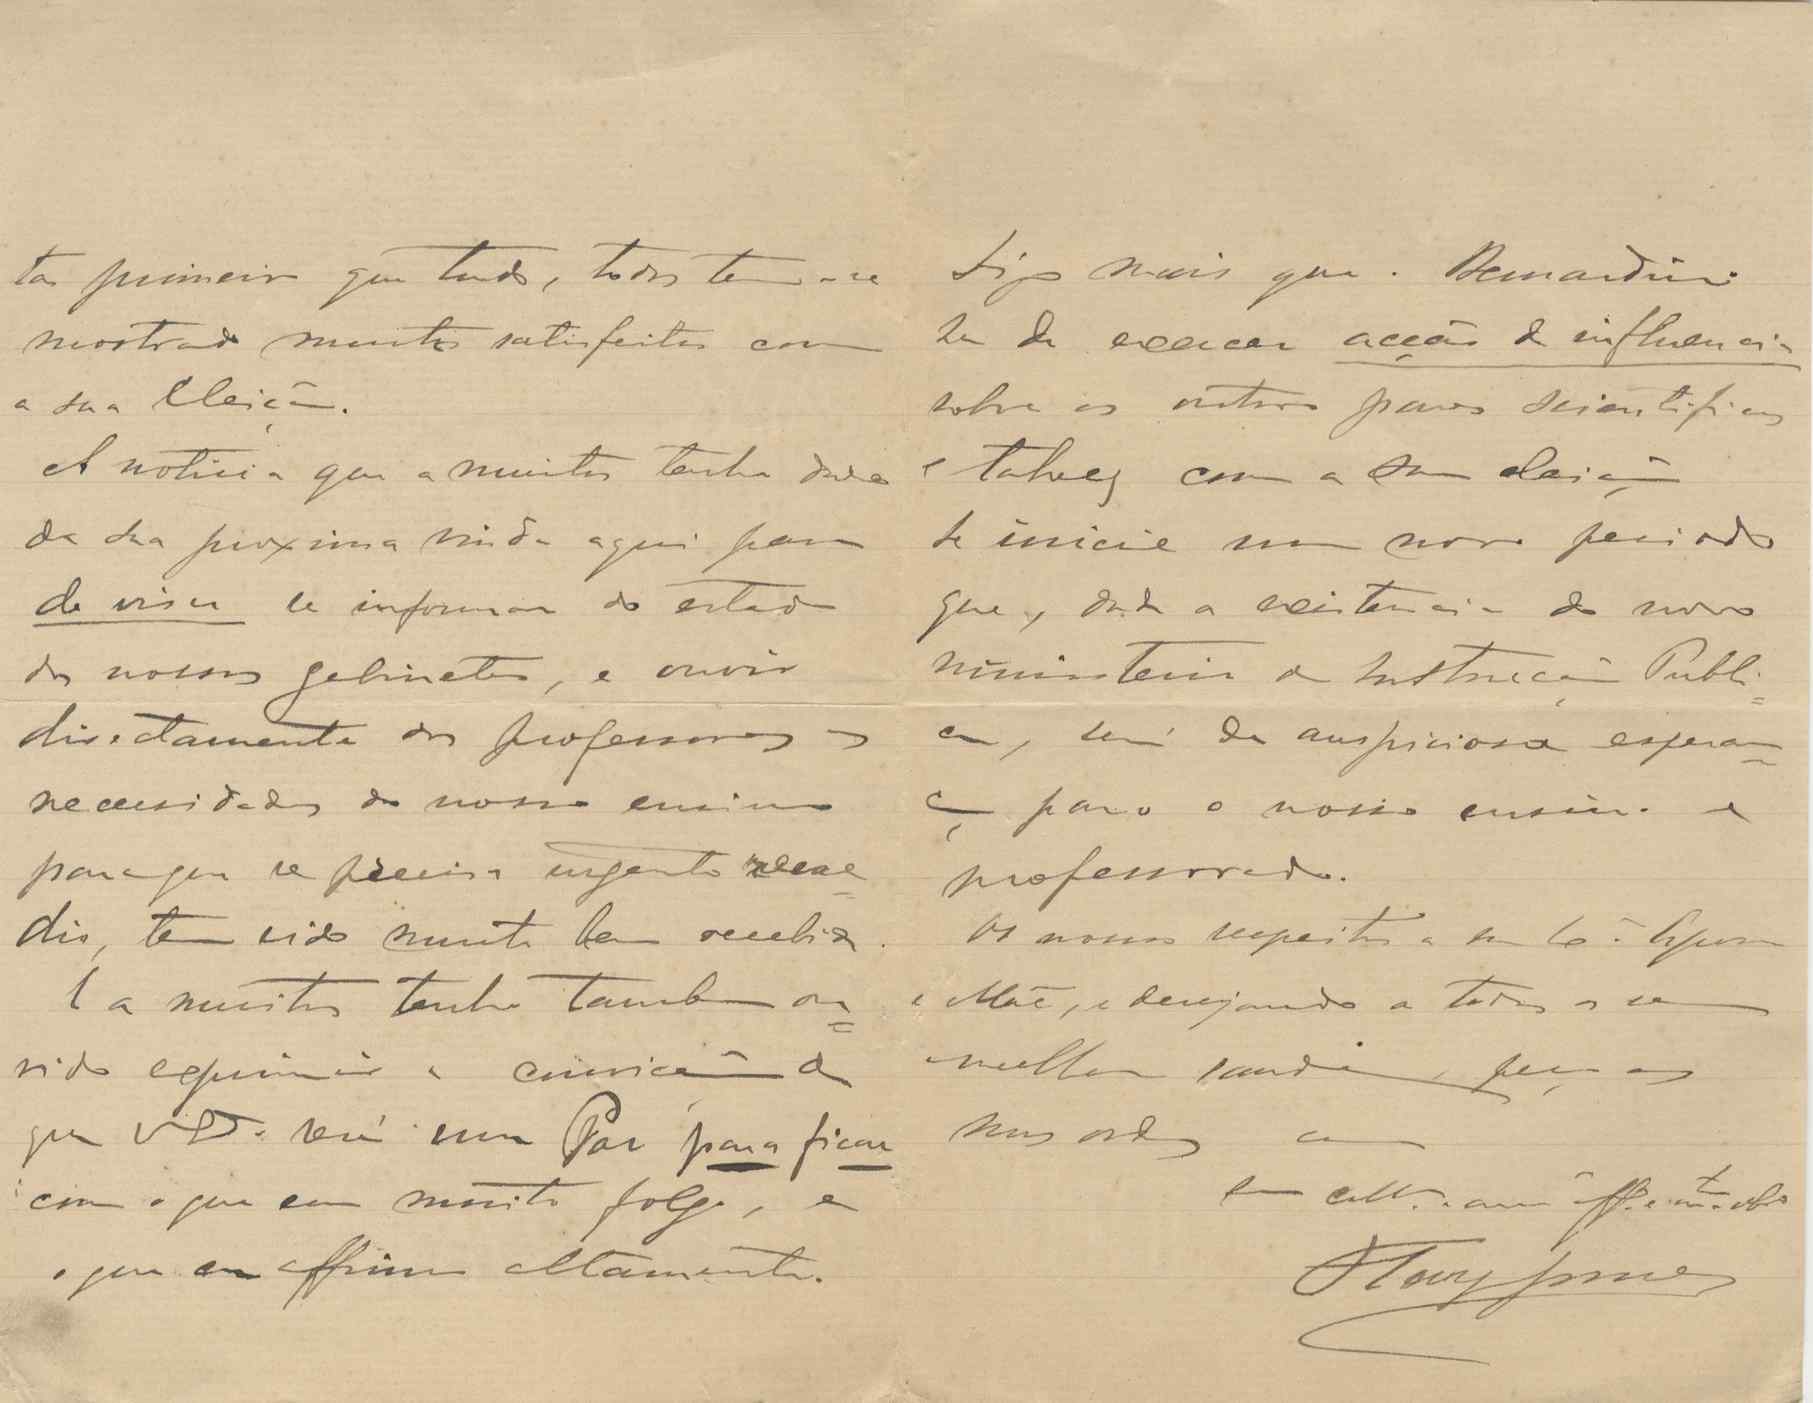 tas primeiro que tudo, todos tem-se
mostrado muito satisfeitos com
a sua Eleição.
A noticia que a muitos tenho dado
da sua proxima vinda aqui para
de visu se informar do estado
dos nossos gabinetes, e ouvir
directamente dos professores as
necessidades do nosso ensino
para que se precisa urgente reme=
dio, tem sido muito bem recebida.
E a muitos tenho tambem ou=
vido exprimir a convicção de
que V. será um Par para ficar
com o que eu muito folgo, e
o que eu affirmo altamente.
Digo mais que o Bernardino
ha de exercer acção de influencia
sobre os outros pares scientificos
e talvez com a sua eleição
se inicie um novo periodo
que, dada a existencia do novo
ministerio da Instrucção Publi=
ca, será de auspiciosa esperan=
ça para o nosso ensino e
professorado.
Os nossos respeitos a sua Esposa
e Mãe, e desejando a todos os seus
melhor saude, peço as
suas ordens como
seu coll. am.